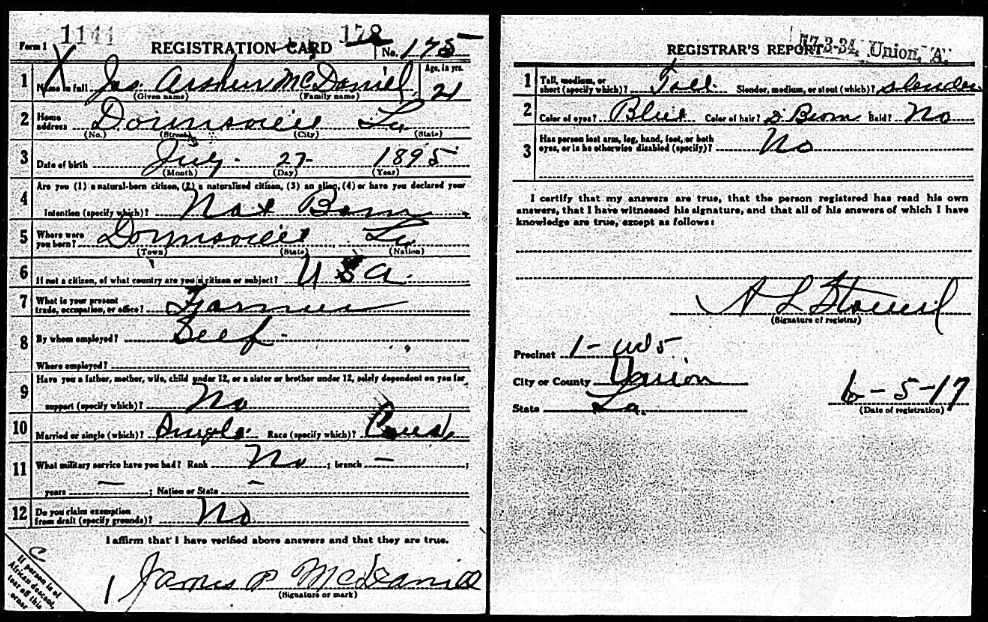 Form 1 1141 REGISTRATION CARD 178 No. 175
1 Name in full Jas Arthur McDaniel Age, in yrs. 21
(Given name) (Family name)
2 Home address Downsville La
(No.) (Street) (City) (State)
3 Date of birth July 27 1895
(Month) (Day) (Year)
4 Are you (1) a natural-born citizen, (2) a naturalized citizen, (3) an alien, (4) or have you declared your
intention (specify which)? Nat Born
5 Where were you born? Downsville La
(Town) (State) (Nation)
6 If not a citizen, of what country are you a citizen or subject? USA.
7 What is your present trade, occupation, or office? Farmer
8 By whom employed? Self
Where employed?
9 Have you a father, mother, wife, child under 12, or a sister or brother under 12, solely dependent on you for
support (specify which)? No
10 Married or single (which)? Single Race (specify which)? Caus
11 What military service have you had? Rank No ; branch —
years — ; Nation or State —
12 Do you claim exemption from draft (specify grounds)? No
I affirm that I have verified above answers and that they are true.
James P McDaniel
(Signature or mark)
If person is of
African descent,
tear off this
corner
REGISTRAR'S REPORT 17-3-34. Union, A.
1 Tall, medium, or short (specify which)? Tall Slender, medium, or stout (which)? slender
2 Color of eyes? Blue Color of hair? D Brown Bald? No
3 Has person lost arm, leg, hand, foot, or both
eyes, or is he otherwise disabled (specify)? No
I certify that my answers are true, that the person registered has read his own
answers, that I have witnessed his signature, and that all of his answers of which I have
knowledge are true, except as follows:
(Signature of registrar)
Precinct 1 - Wd 5
City or County Union
State La.
6-5-17
(Date of registration)